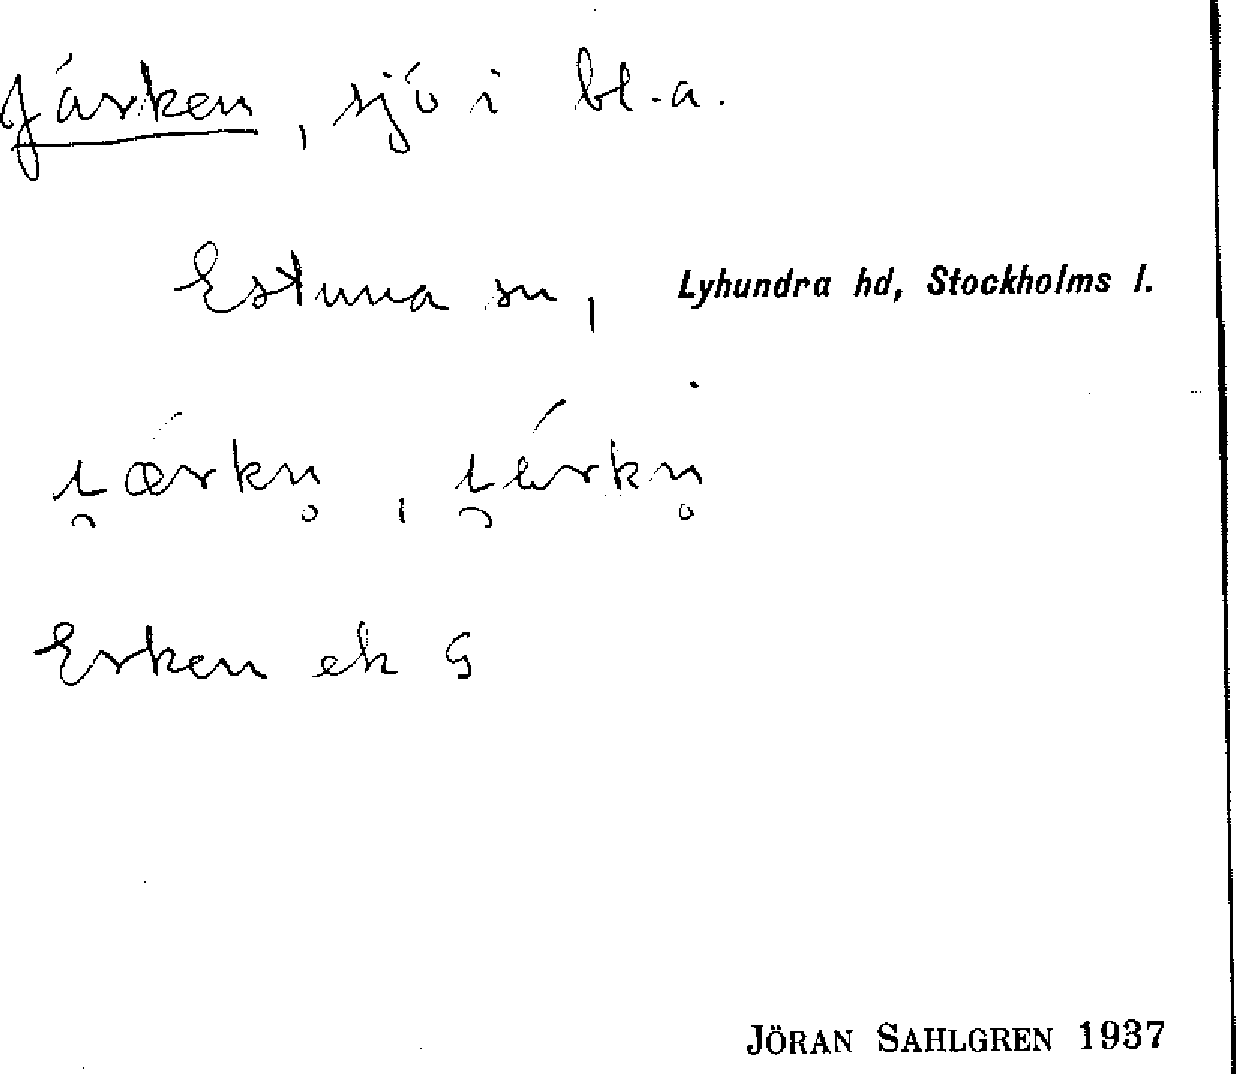 Järken, sjö i bl.a.
Estuna sn, Lyhundra hd, Stockholms l.
i̯ǽrkn̥, i̯érkn̥
Erken ek G
JÖRAN SAHLGREN 1937